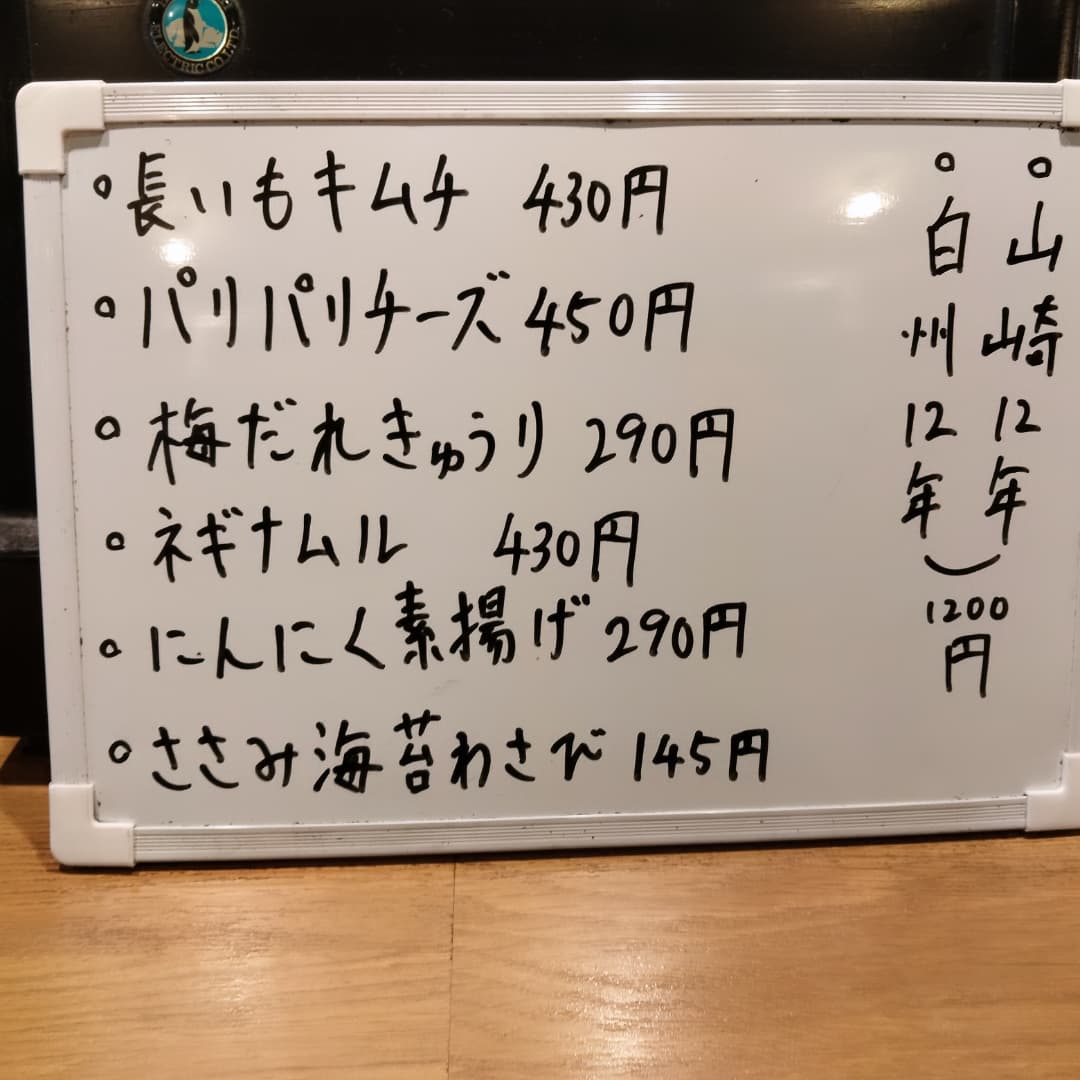 ELECTRIC CO.LTD.
○長いもキムチ 430円
○パリパリチーズ 450円
○梅だれきゅうり 290円
○ネギナムル 430円
○にんにく素揚げ 290円
○ささみ海苔わさび 145円
○山崎12年
○白州12年
1200円